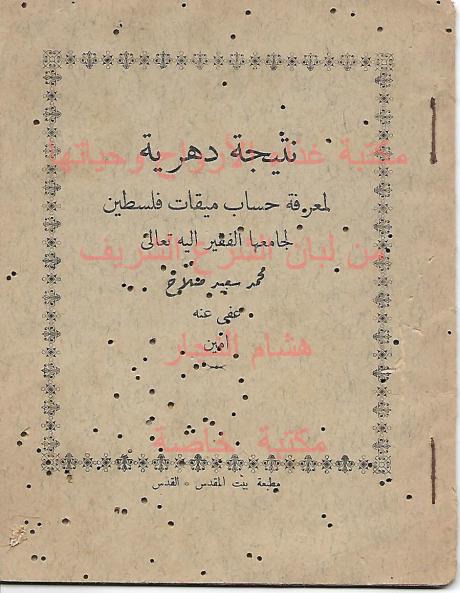 نتيجة دهرية
مكتبة غذاء الأرواح وحياتها
لمعرفة حساب ميقات فلسطين
لجامعها الفقير اليه تعالى
من لبان الشرع الشريف
محمد سعيد صلاح
عفى عنه
هشام النجار
امين
مكتبة خاصة
مطبعة بيت المقدس - القدس